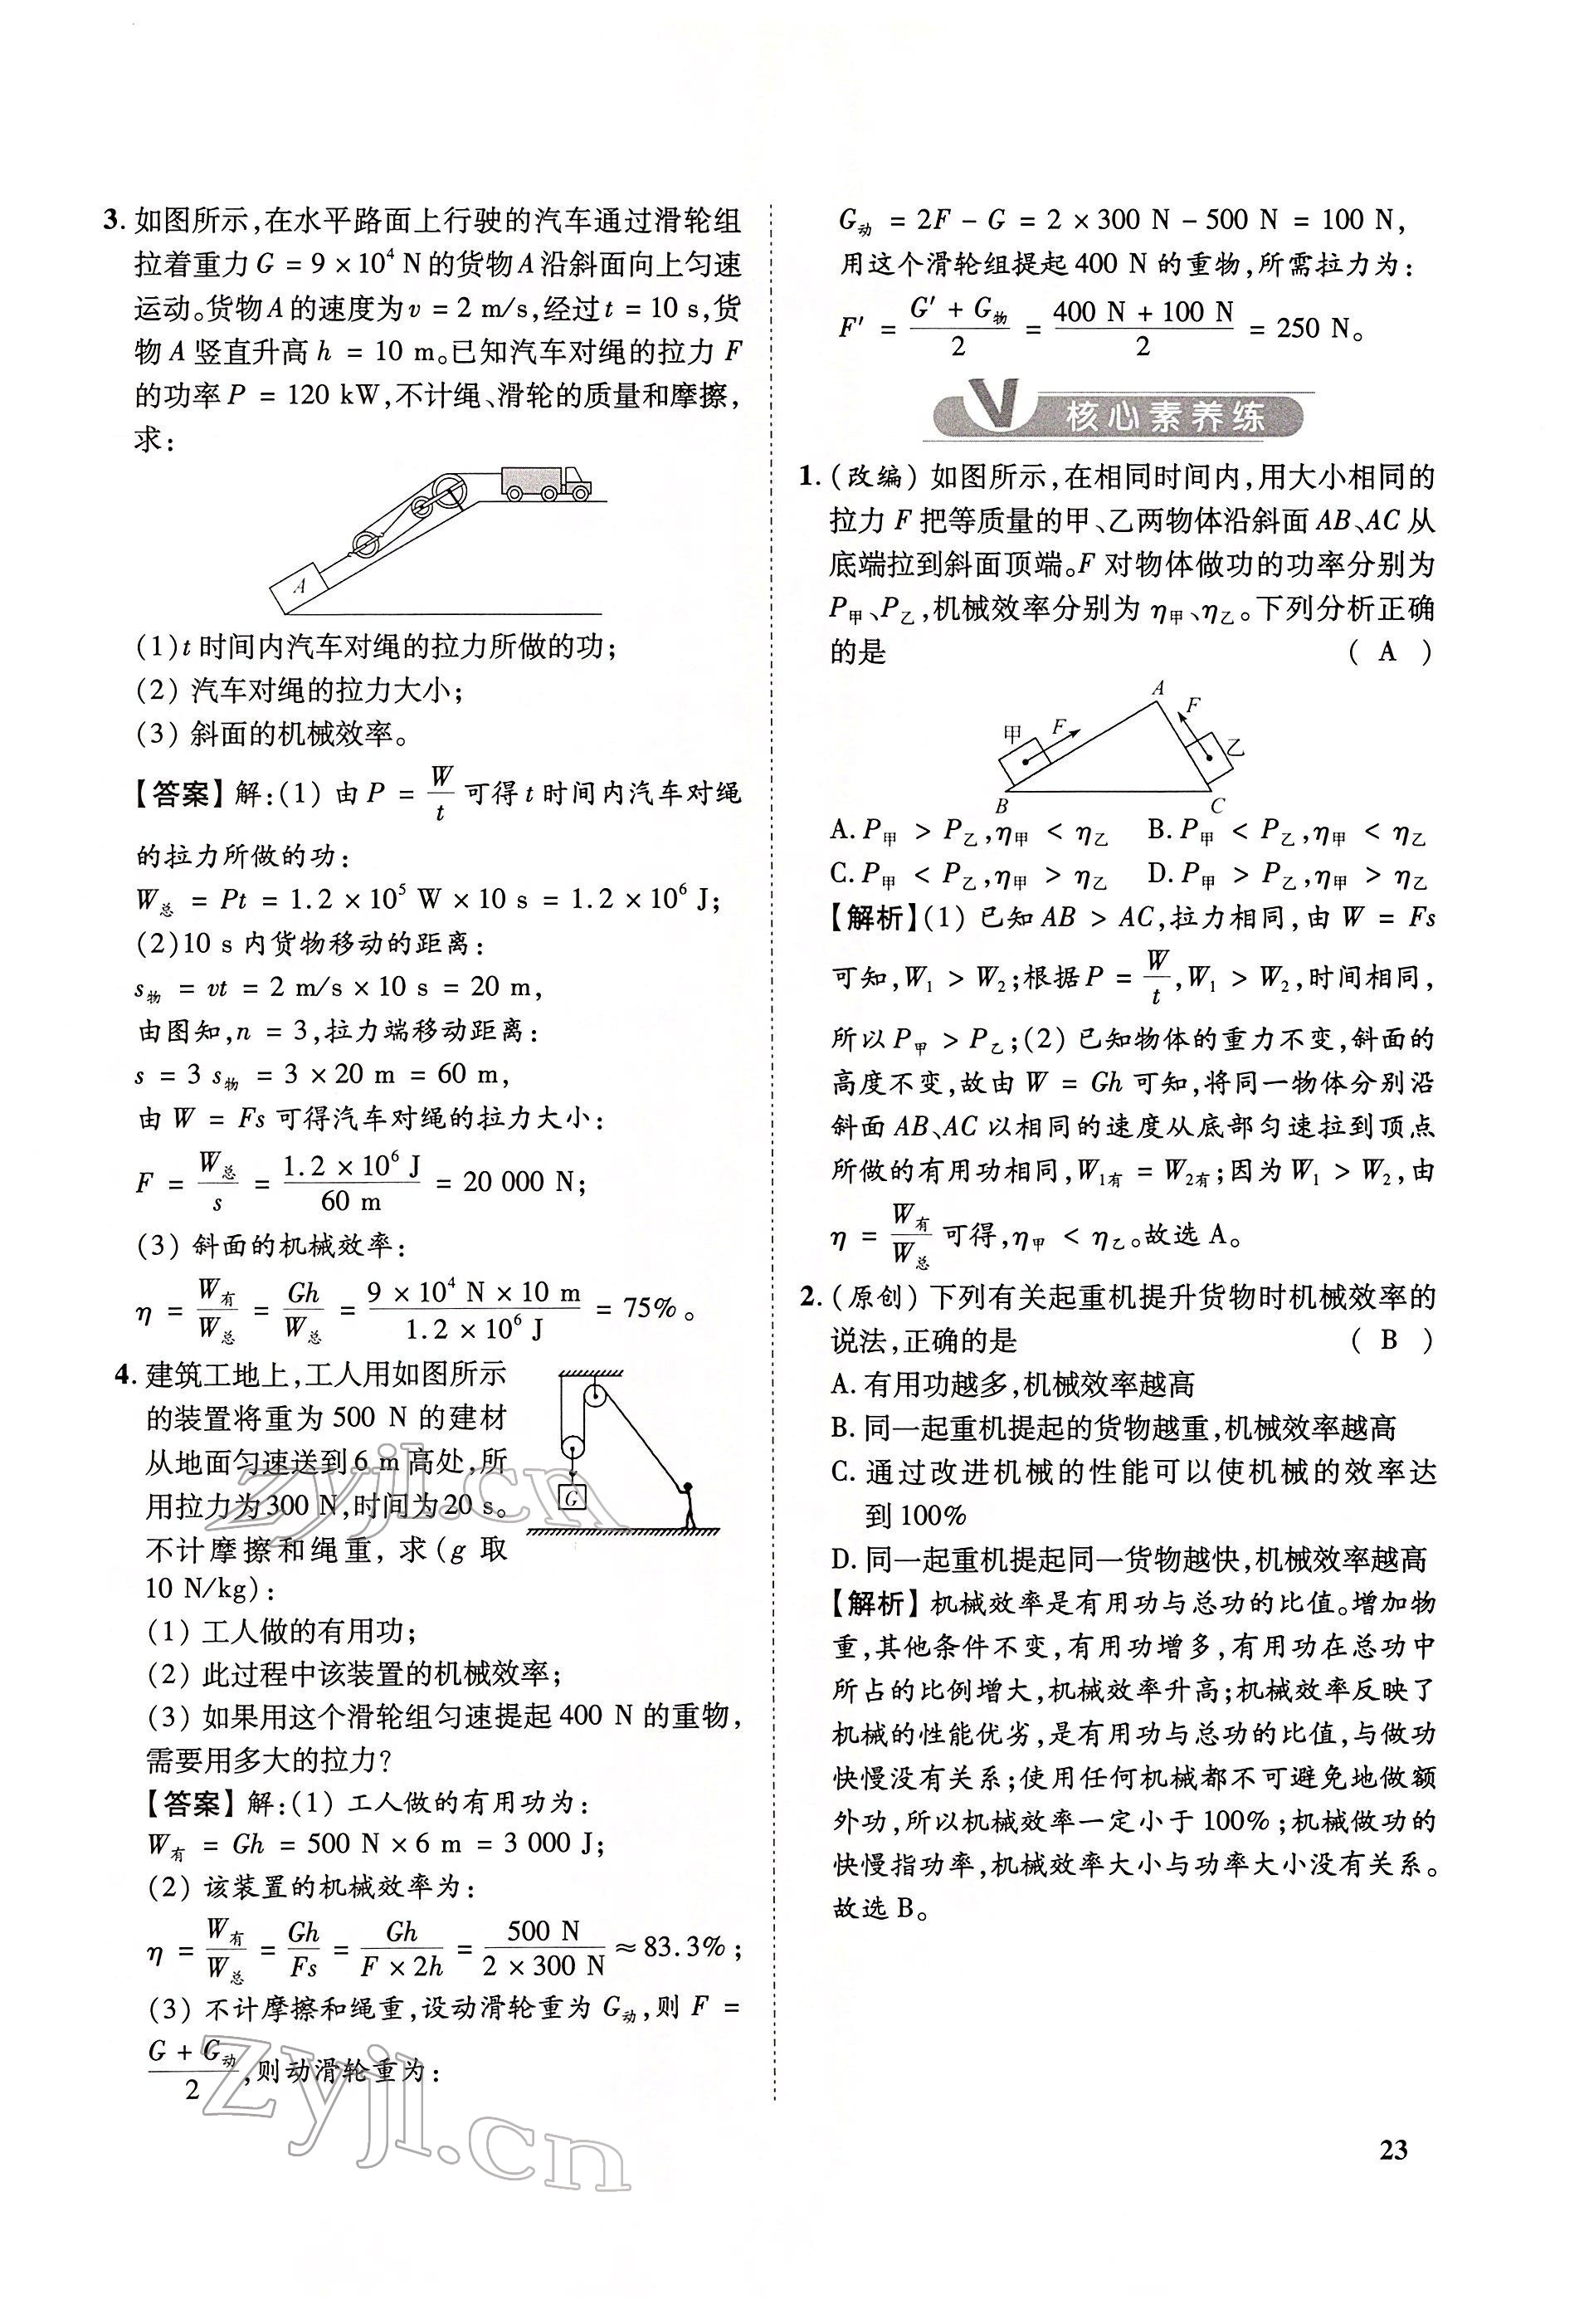 3. 如图所示,在水平路面上行驶的汽车通过滑轮组
拉着重力 G = 9 × 10⁴ N 的货物 A 沿斜面向上匀速
运动。货物 A 的速度为 v = 2 m/s,经过 t = 10 s,货
物 A 竖直升高 h = 10 m。已知汽车对绳的拉力 F
的功率 P = 120 kW,不计绳、滑轮的质量和摩擦,
求:
A
(1)t 时间内汽车对绳的拉力所做的功;
(2) 汽车对绳的拉力大小;
(3) 斜面的机械效率。
【答案】解:(1) 由 P = W/t 可得 t 时间内汽车对绳
的拉力所做的功:
W总 = Pt = 1.2 × 10⁵ W × 10 s = 1.2 × 10⁶ J;
(2)10 s 内货物移动的距离:
s物 = vt = 2 m/s × 10 s = 20 m,
由图知,n = 3,拉力端移动距离:
s = 3 s物 = 3 × 20 m = 60 m,
由 W = Fs 可得汽车对绳的拉力大小:
F = W总/s = 1.2 × 10⁶ J/60 m = 20 000 N;
(3) 斜面的机械效率:
η = W有/W总 = Gh/W总 = 9 × 10⁴ N × 10 m/1.2 × 10⁶ J = 75%。
4. 建筑工地上,工人用如图所示
的装置将重为 500 N 的建材
从地面匀速送到 6 m 高处,所
用拉力为 300 N,时间为 20 s。
不计摩擦和绳重, 求(g 取
10 N/kg):
G
(1) 工人做的有用功;
(2) 此过程中该装置的机械效率;
(3) 如果用这个滑轮组匀速提起 400 N 的重物,
需要用多大的拉力?
【答案】解:(1) 工人做的有用功为:
W有 = Gh = 500 N × 6 m = 3 000 J;
(2) 该装置的机械效率为:
η = W有/W总 = Gh/Fs = Gh/F × 2h = 500 N/2 × 300 N ≈ 83.3%;
(3) 不计摩擦和绳重,设动滑轮重为 G动,则 F =
G + G动/2,则动滑轮重为:
G动 = 2F − G = 2 × 300 N − 500 N = 100 N,
用这个滑轮组提起 400 N 的重物,所需拉力为:
F′ = G′ + G物/2 = 400 N + 100 N/2 = 250 N。
V 核心素养练
1. (改编) 如图所示,在相同时间内,用大小相同的
拉力 F 把等质量的甲、乙两物体沿斜面 AB、AC 从
底端拉到斜面顶端。F 对物体做功的功率分别为
P甲、P乙,机械效率分别为 η甲、η乙。下列分析正确
的是 ( A )
A
F
甲 F
乙
B C
A. P甲 > P乙,η甲 < η乙 B. P甲 < P乙,η甲 < η乙
C. P甲 < P乙,η甲 > η乙 D. P甲 > P乙,η甲 > η乙
【解析】(1) 已知 AB > AC,拉力相同,由 W = Fs
可知,W₁ > W₂;根据 P = W/t,W₁ > W₂,时间相同,
所以 P甲 > P乙;(2) 已知物体的重力不变,斜面的
高度不变,故由 W = Gh 可知,将同一物体分别沿
斜面 AB、AC 以相同的速度从底部匀速拉到顶点
所做的有用功相同,W1有 = W2有;因为 W₁ > W₂,由
η = W有/W总 可得,η甲 < η乙。故选 A。
2. (原创) 下列有关起重机提升货物时机械效率的
说法,正确的是 ( B )
A. 有用功越多,机械效率越高
B. 同一起重机提起的货物越重,机械效率越高
C. 通过改进机械的性能可以使机械的效率达
到 100%
D. 同一起重机提起同一货物越快,机械效率越高
【解析】机械效率是有用功与总功的比值。增加物
重,其他条件不变,有用功增多,有用功在总功中
所占的比例增大,机械效率升高;机械效率反映了
机械的性能优劣,是有用功与总功的比值,与做功
快慢没有关系;使用任何机械都不可避免地做额
外功,所以机械效率一定小于 100%;机械做功的
快慢指功率,机械效率大小与功率大小没有关系。
故选 B。
zyjl.cn
zyjl.cn
23